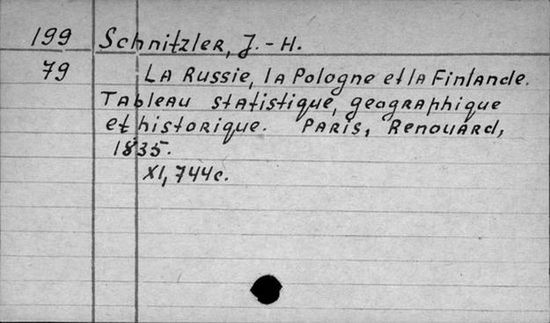 199 Schnitzler, J.-H.
79 La Russie, la Pologne et la Finlande.
Tableau statistique, geographique
et historique. Paris, Renouard,
1835.
XI, 744c.